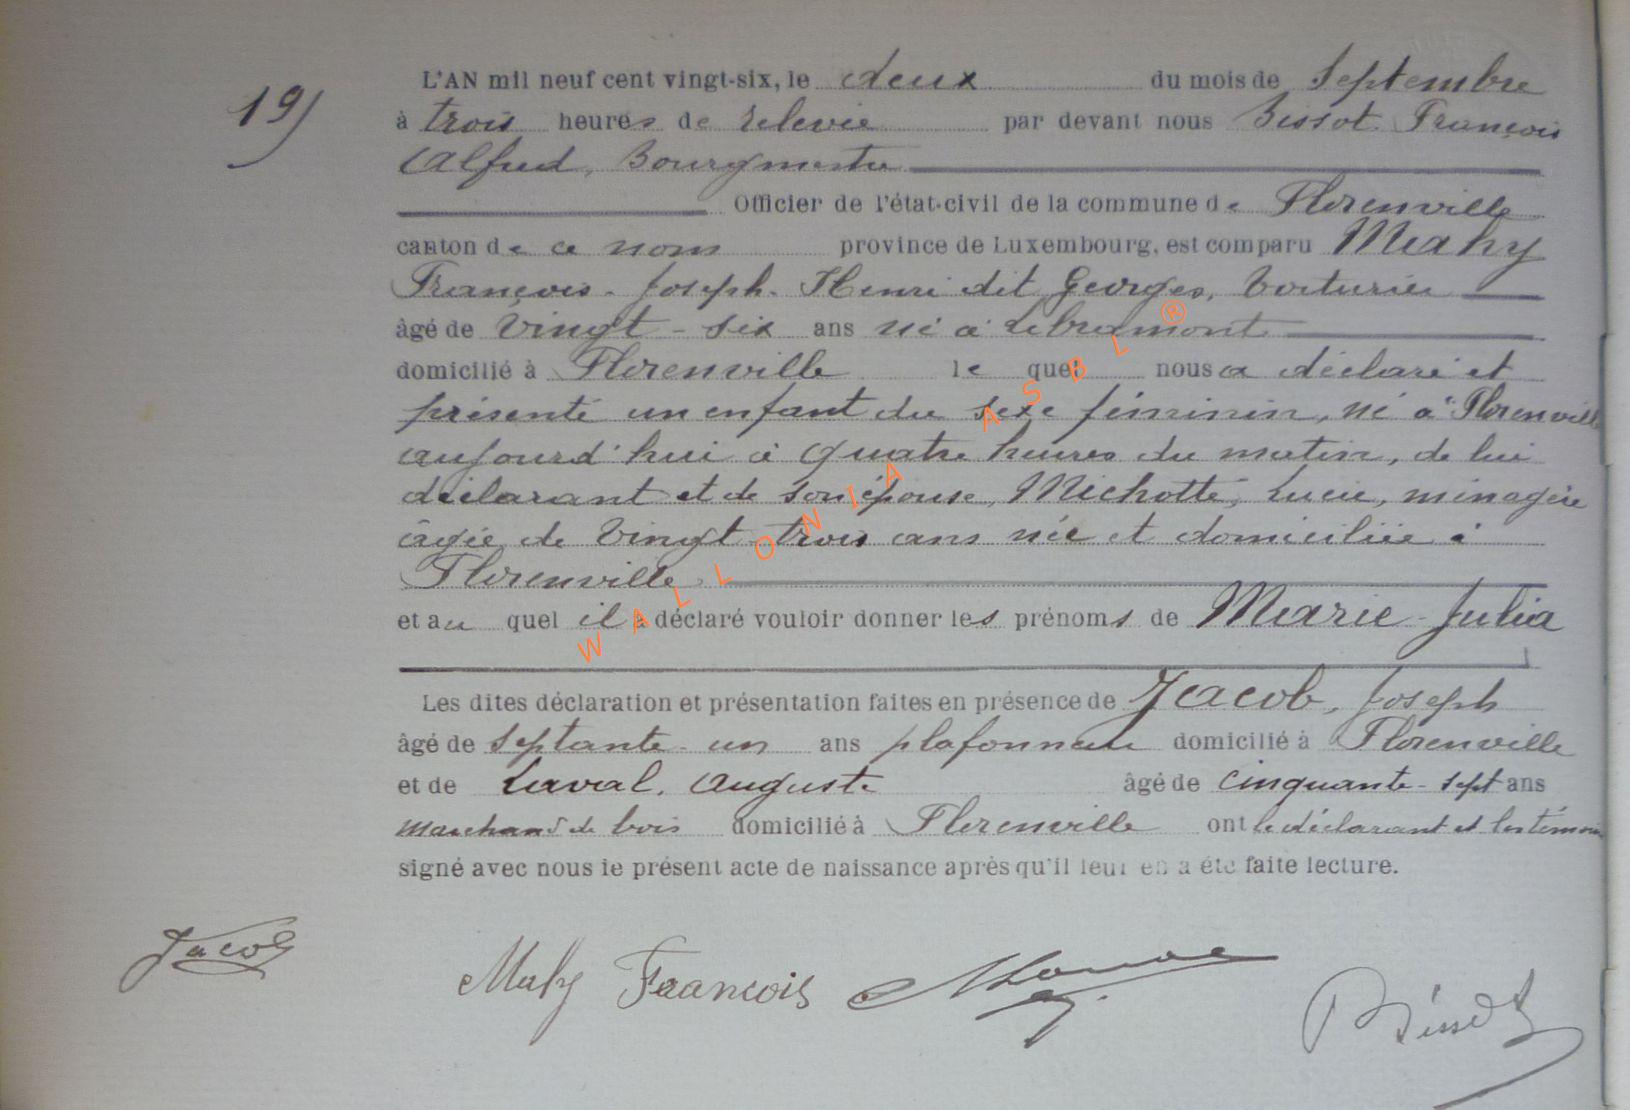 19)
L'AN mil neuf cent vingt-six, le deux du mois de Septembre
à trois heures de relevée par devant nous Bissot François
Alfred, Bourgmestre
Officier de l'état-civil de la commune de Florenville
canton de ce nom province de Luxembourg, est comparu Mahy
François-Joseph-Henri dit Georges, Voiturier
âgé de Vingt-six ans né à Libramont
domicilié à Florenville le quel nous a déclaré et
présenté un enfant du sexe féminin, né à Florenville
aujourd'hui à quatre heures du matin, de lui
déclarant et de son épouse, Michotte, Lucie, ménagère
âgée de Vingt-trois ans née et domiciliée à
Florenville
et au quel il a déclaré vouloir donner les prénoms de Marie-Julia
Les dites déclaration et présentation faites en présence de Jacob, Joseph
âgé de septante-un ans plafonneur domicilié à Florenville
et de Laval, Auguste âgé de cinquante-sept ans
Marchand de bois domicilié à Florenville ont le déclarant et les témoins
signé avec nous le présent acte de naissance après qu'il leur en a été faite lecture.
Jacob
Mahy François
Bissot
WALLONIA ASBL ®